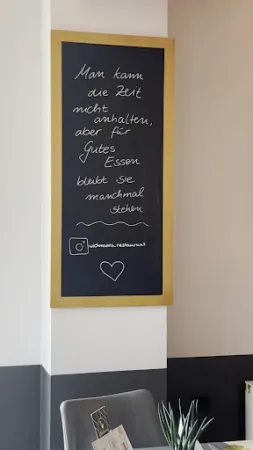 Man kann
die Zeit
nicht
anhalten,
aber für
Gutes
Essen
bleibt sie
manchmal
stehen